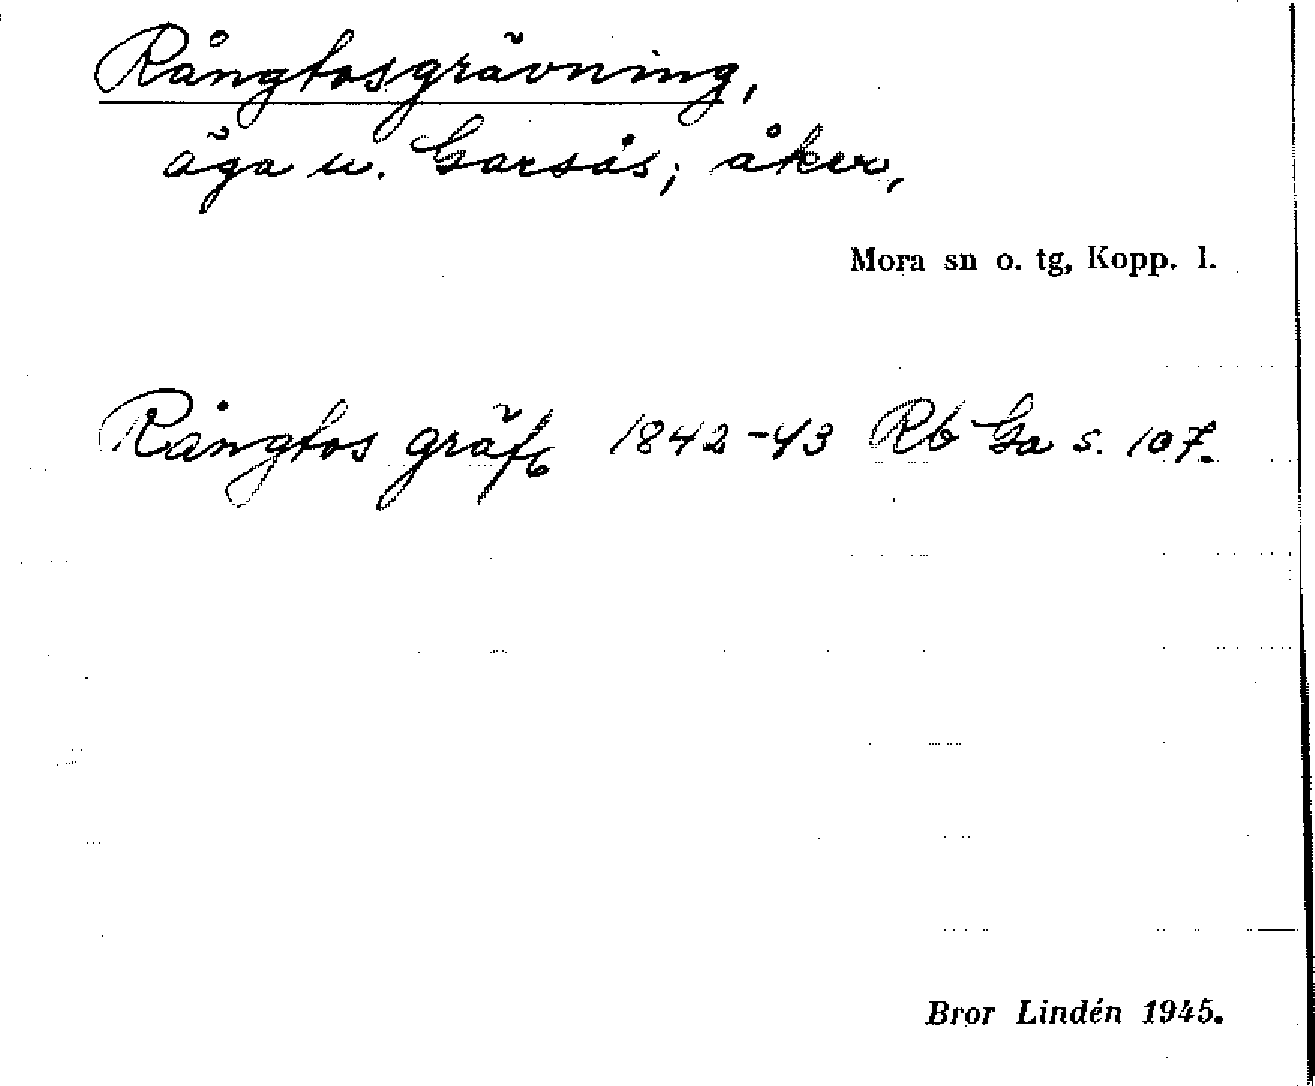 Rångtosgrävning,
äga u. Garsås; åker,
Mora sn o. tg, Kopp. l.
Rångtos gräfn 1842-43 Rb Ga s. 107.
Bror Lindén 1945.